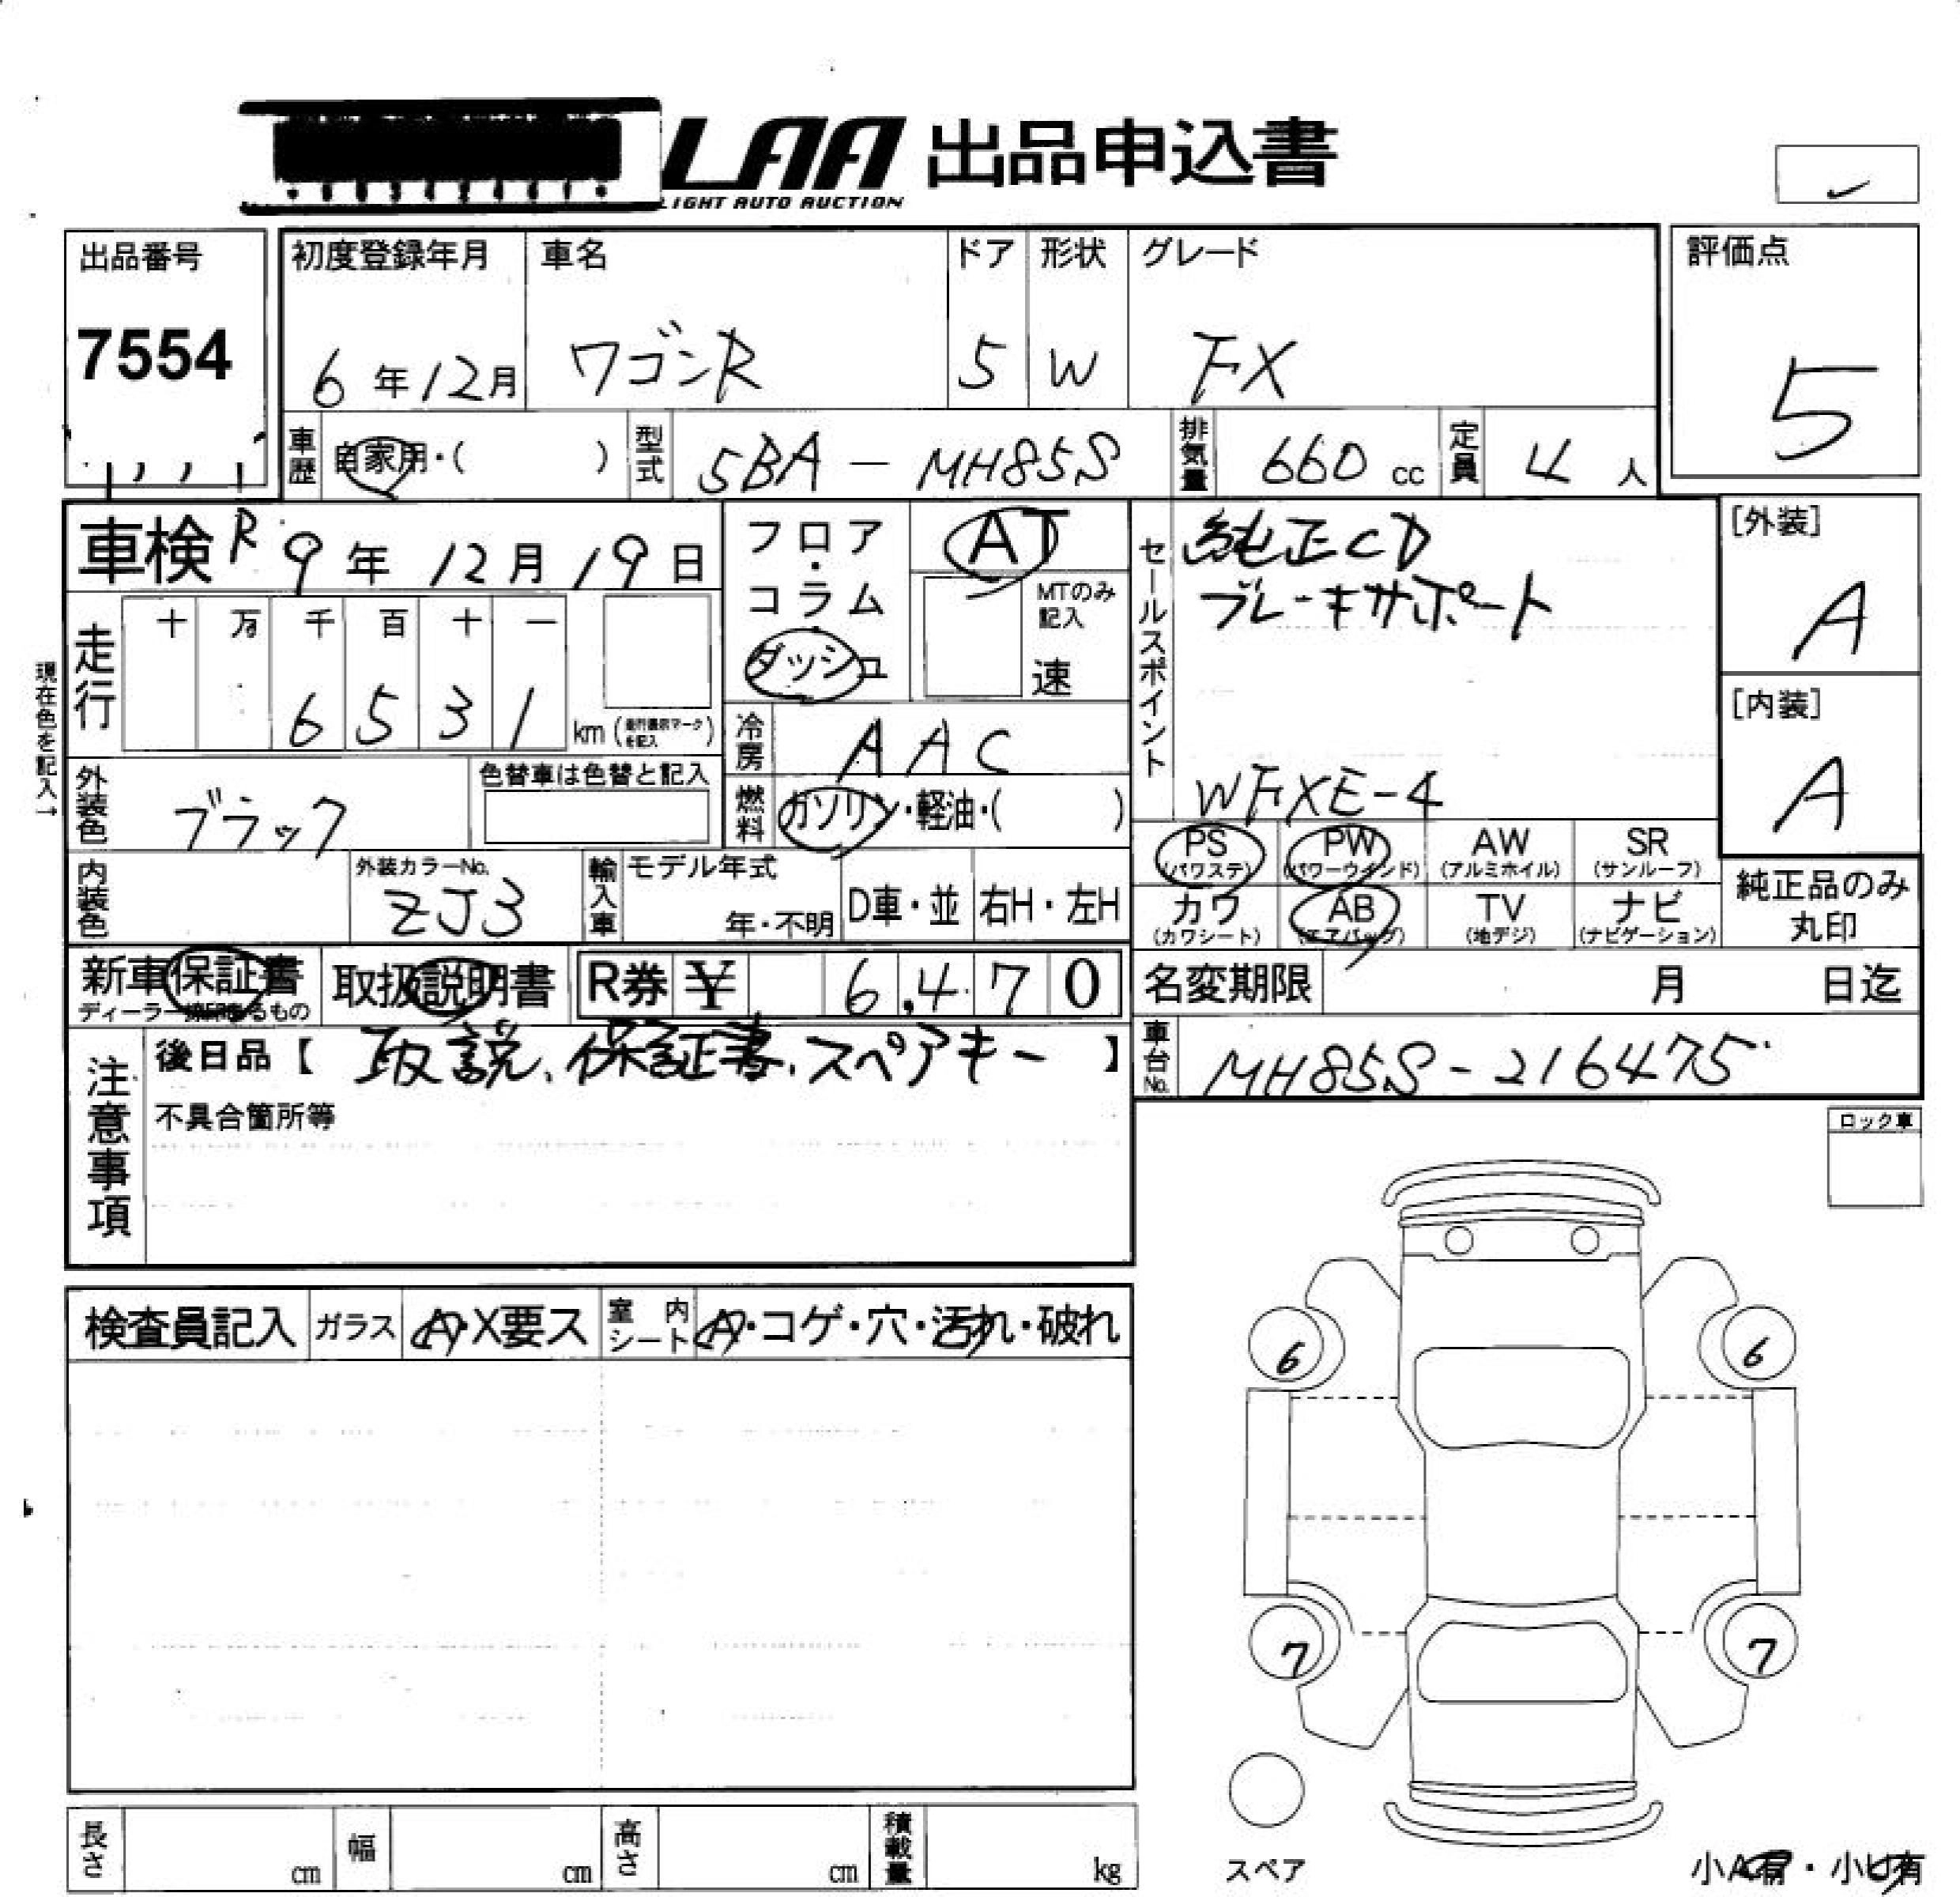 LAA 出品申込書
LIGHT AUTO AUCTION
出品番号
7554
初度登録年月
6年12月
車名
ワゴンR
ドア
5
形状
W
グレード
FX
評価点
5
車歴 自家用・( )
型式 5BA-MH85S
排気量 660cc
定員 4人
車検 R9年12月19日
フロア・コラム・ダッシュ
AT
MTのみ記入
速
セールスポイント
純正CD
ブレーキサポート
WFXE-4
[外装]
A
[内装]
A
現在色を記入→
走行
十 万 千 百 十 一
6 5 3 1 km
冷房 AAC
外装色 ブラック
色替車は色替と記入
燃料 ガソリン・軽油・( )
内装色
外装カラーNo.
ZJ3
輸入車
モデル年式
年・不明
D車・並
右H・左H
PS (パワステ)
PW (パワーウインド)
AW (アルミホイル)
SR (サンルーフ)
カワ (カワシート)
AB (エアバッグ)
TV (地デジ)
ナビ (ナビゲーション)
純正品のみ
丸印
新車保証書
取扱説明書
R券 ¥ 6,470
名変期限 月 日迄
注意事項
後日品【取説、保証書、スペアキー】
不具合箇所等
車台No. MH85S-216475
ロック車
検査員記入
ガラス A・X要ス
室内シート A・コゲ・穴・汚れ・破れ
6
6
7
7
スペア
長さ cm
幅 cm
高さ cm
積載量 kg
小A有・小U有